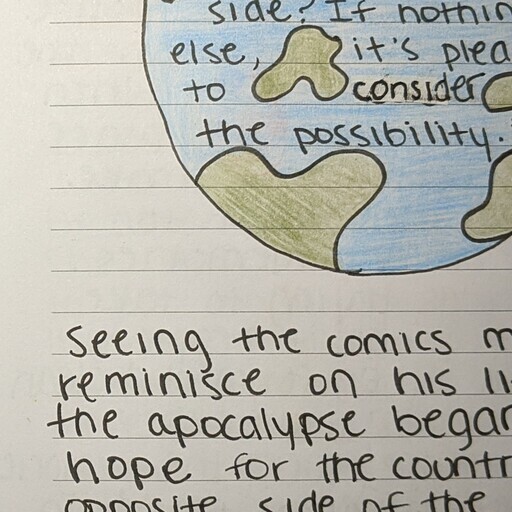 side? If nothin
else, it's plea
to consider
the possibility.
Seeing the comics m
reminisce on his li
the apocalypse began
hope for the countr
opposite side of the